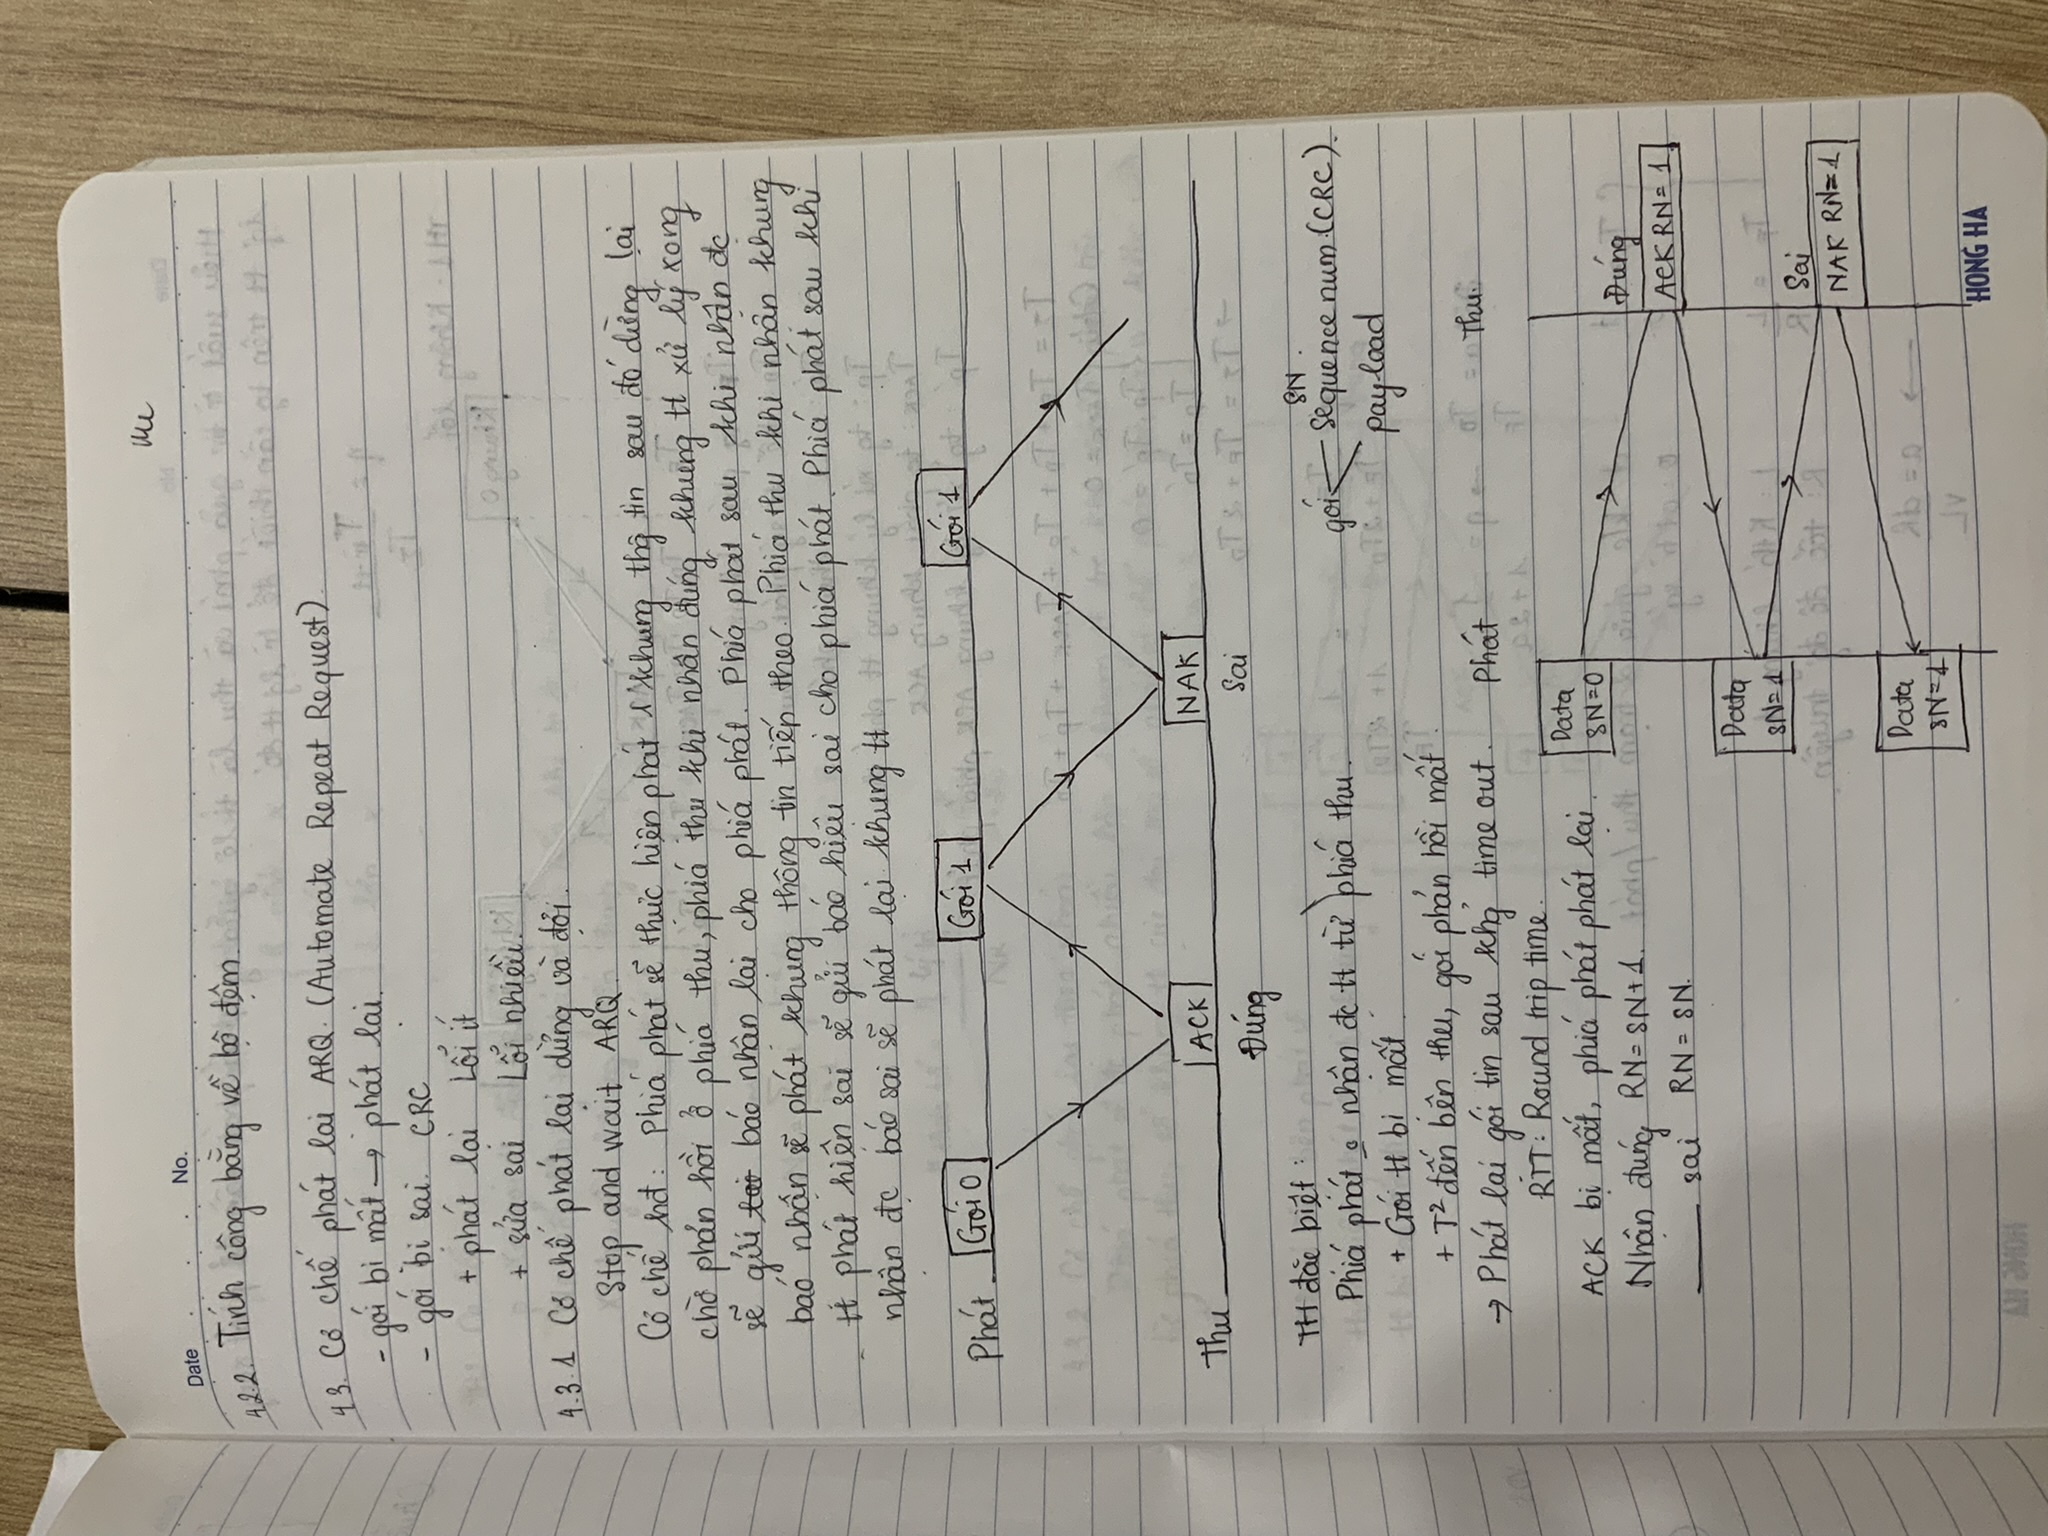 Date No.
4.2.2. Tính công bằng về bộ đệm.
4.3. Cơ chế phát lại ARQ. (Automate Repeat Request)
- gói bị mất → phát lại.
- gói bị sai. CRC
+ phát lại Lỗi ít
+ sửa sai Lỗi nhiều.
4.3.1 Cơ chế phát lại dừng và đợi.
Stop and wait ARQ.
Cơ chế hđ: Phía phát sẽ thực hiện phát 1 khung thg tin sau đó dừng lại
chờ phản hồi ở phía thu, phía thu khi nhận đúng khung tt xử lý xong
sẽ gửi báo nhận lại cho phía phát. Phía phát sau khi nhận đc
báo nhận sẽ phát khung thông tin tiếp theo. Phía thu khi nhận khung
tt phát hiện sai sẽ gửi báo hiệu sai cho phía phát. Phía phát sau khi
nhận đc báo sai sẽ phát lại khung tt
Phát Gói 0 Gói 1 Gói 1
Thu ACK NAK
Đúng Sai
TH đặc biệt:
SN.
gói Sequence num (CRC).
Phía phát nhận đc tt từ phía thu.
payload
+ Gói tt bị mất
+ T² đến bên thu, gói phản hồi mất.
→ Phát lại gói tin sau khg time out.
RTT: Round trip time.
ACK bị mất, phía phát phát lại.
Nhận đúng RN=SN+1.
sai RN=SN.
Phát Thu.
Data
SN=0
Đúng
ACK RN=1
Data
SN=1
Sai
NAK RN=1
Data
SN=1
HONG HA